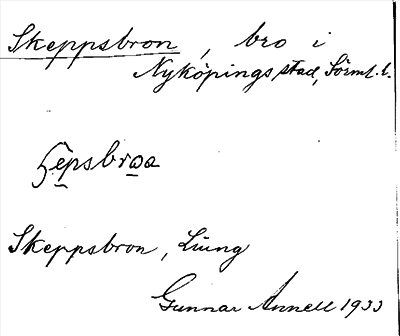 Skeppsbron, bro i
Nyköpings stad, Sörml. l.
Skeppsbron, Ljung
Gunnar Annell 1933